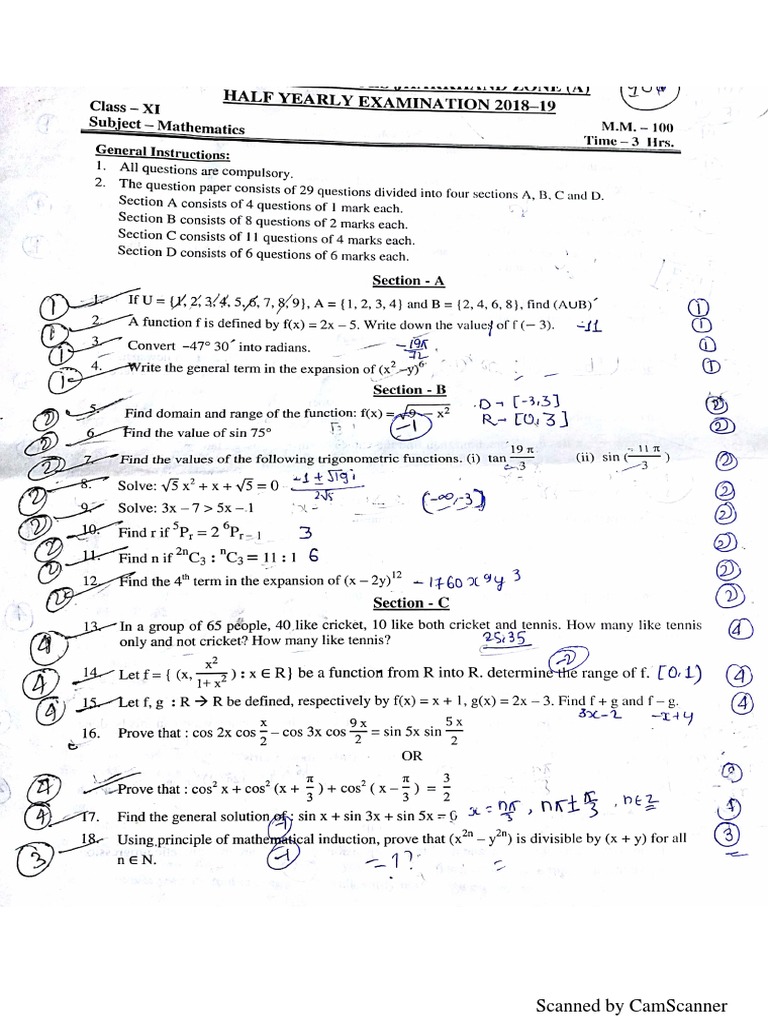 HALF YEARLY EXAMINATION 2018–19
Class – XI
Subject – Mathematics
M.M. – 100
Time – 3 Hrs.
General Instructions:
1. All questions are compulsory.
2. The question paper consists of 29 questions divided into four sections A, B, C and D.
Section A consists of 4 questions of 1 mark each.
Section B consists of 8 questions of 2 marks each.
Section C consists of 11 questions of 4 marks each.
Section D consists of 6 questions of 6 marks each.
Section - A
① 1. If U = {1, 2, 3, 4, 5, 6, 7, 8, 9}, A = {1, 2, 3, 4} and B = {2, 4, 6, 8}, find (AUB)´ ①
① 2. A function f is defined by f(x) = 2x – 5. Write down the values of f (– 3). -11 ①
① 3. Convert –47° 30´ into radians. -19π/72 ①
① 4. Write the general term in the expansion of (x² –y)⁶ ①
Section - B
② 5. Find domain and range of the function: f(x) = √9 – x² D → [-3,3] R → [0,3] ②
-1
② 6. Find the value of sin 75° ②
② 7. Find the values of the following trigonometric functions. (i) tan 19 π/3 (ii) sin (– 11 π/3) ②
② 8. Solve: √5 x² + x + √5 = 0 -1 ± √19 i / 2√5 ②
② 9. Solve: 3x – 7 > 5x – 1 (-∞,-3) ②
② 10. Find r if ⁵Pᵣ = 2 ⁶Pᵣ₋₁ 3 ②
② 11. Find n if ²ⁿC₃ : ⁿC₃ = 11 : 1 6 ②
② 12. Find the 4th term in the expansion of (x – 2y)¹² -1760 x⁹y³ ②
Section - C
④ 13. In a group of 65 people, 40 like cricket, 10 like both cricket and tennis. How many like tennis ④
only and not cricket? How many like tennis? 25, 35
④ 14. Let f = { (x, x²/1+ x²) : x ∈ R} be a function from R into R. determine the range of f. [0,1) ④
④ 15. Let f, g : R → R be defined, respectively by f(x) = x + 1, g(x) = 2x – 3. Find f + g and f – g. ④
3x-2 -x+4
16. Prove that : cos 2x cos x/2 – cos 3x cos 9 x/2 = sin 5x sin 5 x/2
OR
Prove that : cos² x + cos² (x + π/3) + cos² ( x – π/3) = 3/2
④ 17. Find the general solution of : sin x + sin 3x + sin 5x = 0 x = nπ/3, nπ ± π/3, n∈Z ④
③ 18. Using principle of mathematical induction, prove that (x²ⁿ – y²ⁿ) is divisible by (x + y) for all ③
n ∈ N. -1 =1?
Scanned by CamScanner